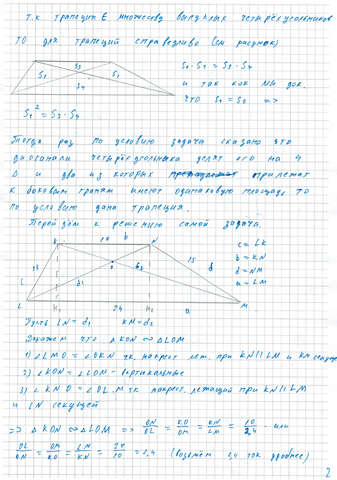 Т.к трапеция ∈ множеству выпуклых четырёхугольников
то для трапеций справедливо (см рисунок)
S1 · S2 = S3 · S4
и так как мы док.
что S1 = S2 =>
S1² = S3 · S4
S3
S1
S2
S4
Тогда раз по условию задачи сказано что
диагонали четырёхугольника делят его на 4
Δ и два из которых прилежат
к боковым граням имеют одинаковую площадь то
по условию дана трапеция.
Перейдём к решению самой задачи.
K 10 b N
c = LK
b = KN
d = NM
a = LM
13
15
O
d2
d1
c
d
L H1 24 H2 a M
Пусть LN = d1 KM = d2
Докажем что Δ KON ∾ Δ LOM
1) ∠ LMO = ∠ OKN т.к. накрест леж. при KN || LM и KM секущей
2) ∠ KON = ∠ LOM - вертикальные
3) ∠ KNO = ∠ OLM т.к накрест. лежащий при KN || LM
и LN секущей
=> Δ KON ∾ Δ LOM => ON/OL = KO/OM = KN/LM = 10/24 или
OL/ON = OM/KO = LM/KN = 24/10 = 2,4 (возьмём 2,4 так удобнее)
2